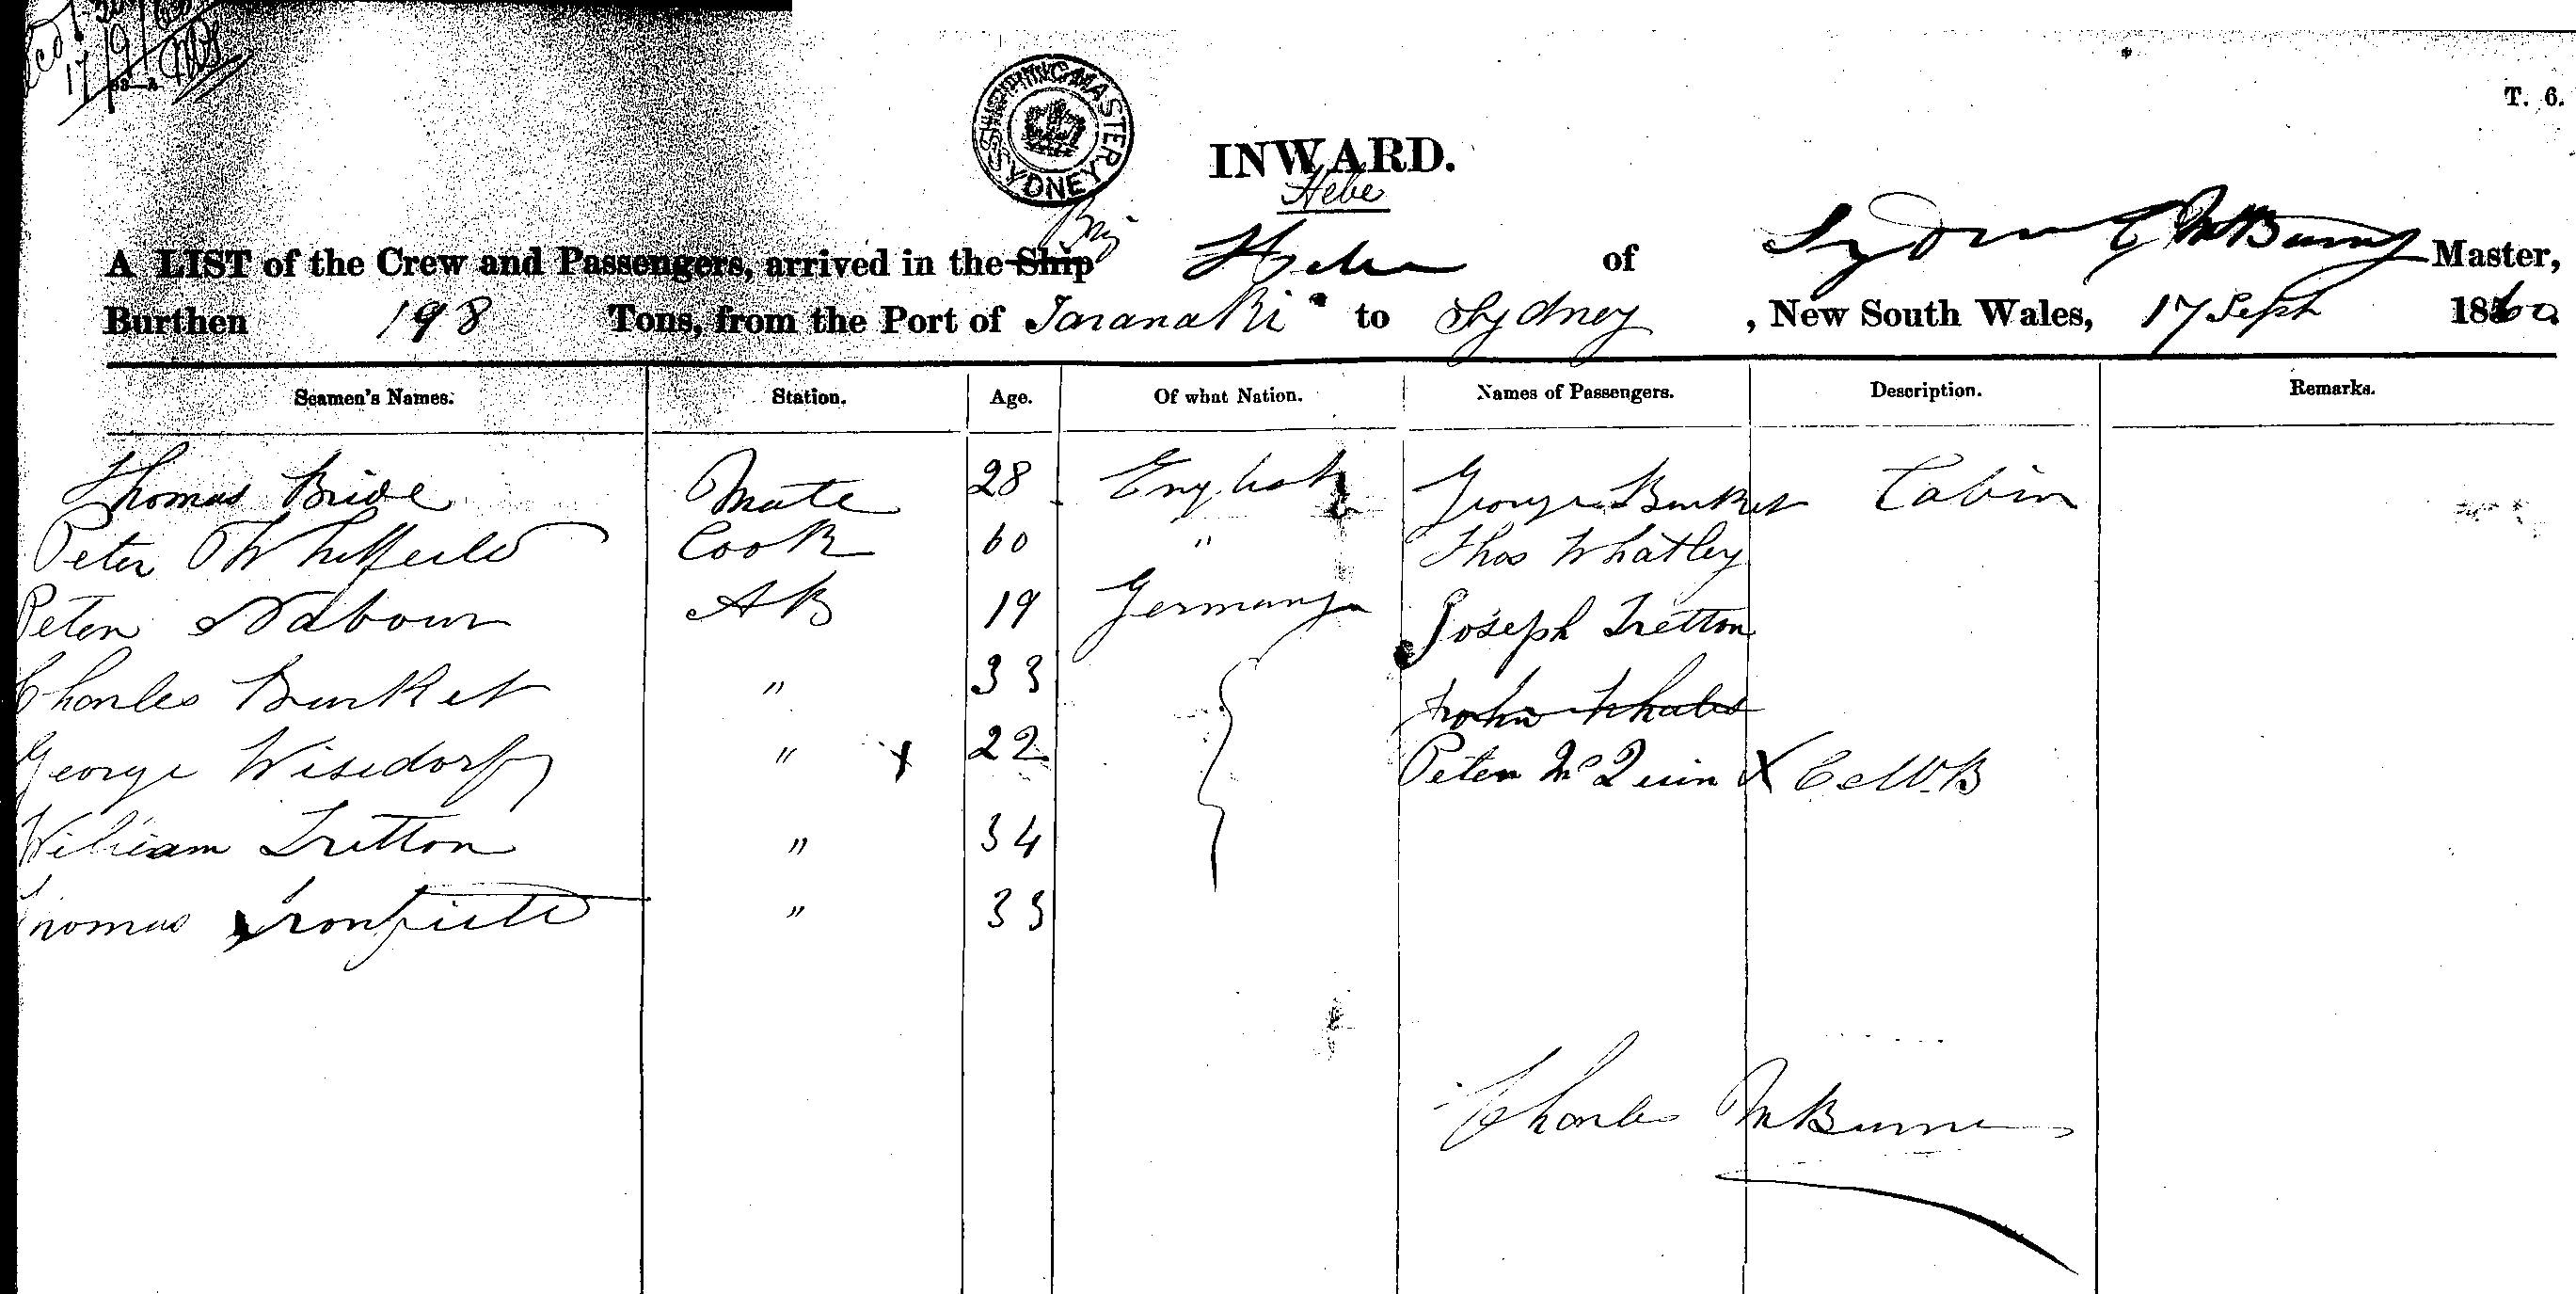 17/9/60
T. 6.
SHIPPING MASTER SYDNEY
INWARD.
Hebe
Brig
A LIST of the Crew and Passengers, arrived in the Ship Hebe of Sydney C McBurney Master,
Burthen 198 Tons, from the Port of Taranaki to Sydney, New South Wales, 17 Sept 1860
Seamen's Names. Station. Age. Of what Nation. Names of Passengers. Description. Remarks.
Thomas Bride Mate 28 English George Burket Cabin
Peter Whiffeild Cook 60 " Thos Whatley
Peter Nabour AB 19 Germany Joseph Tretton
Charles Burket " 33 John
George Wisedorf " x 22 Peter McQuin X C McB
William Tretton " 34
Thomas Ironfield " 33
Charles McBurney